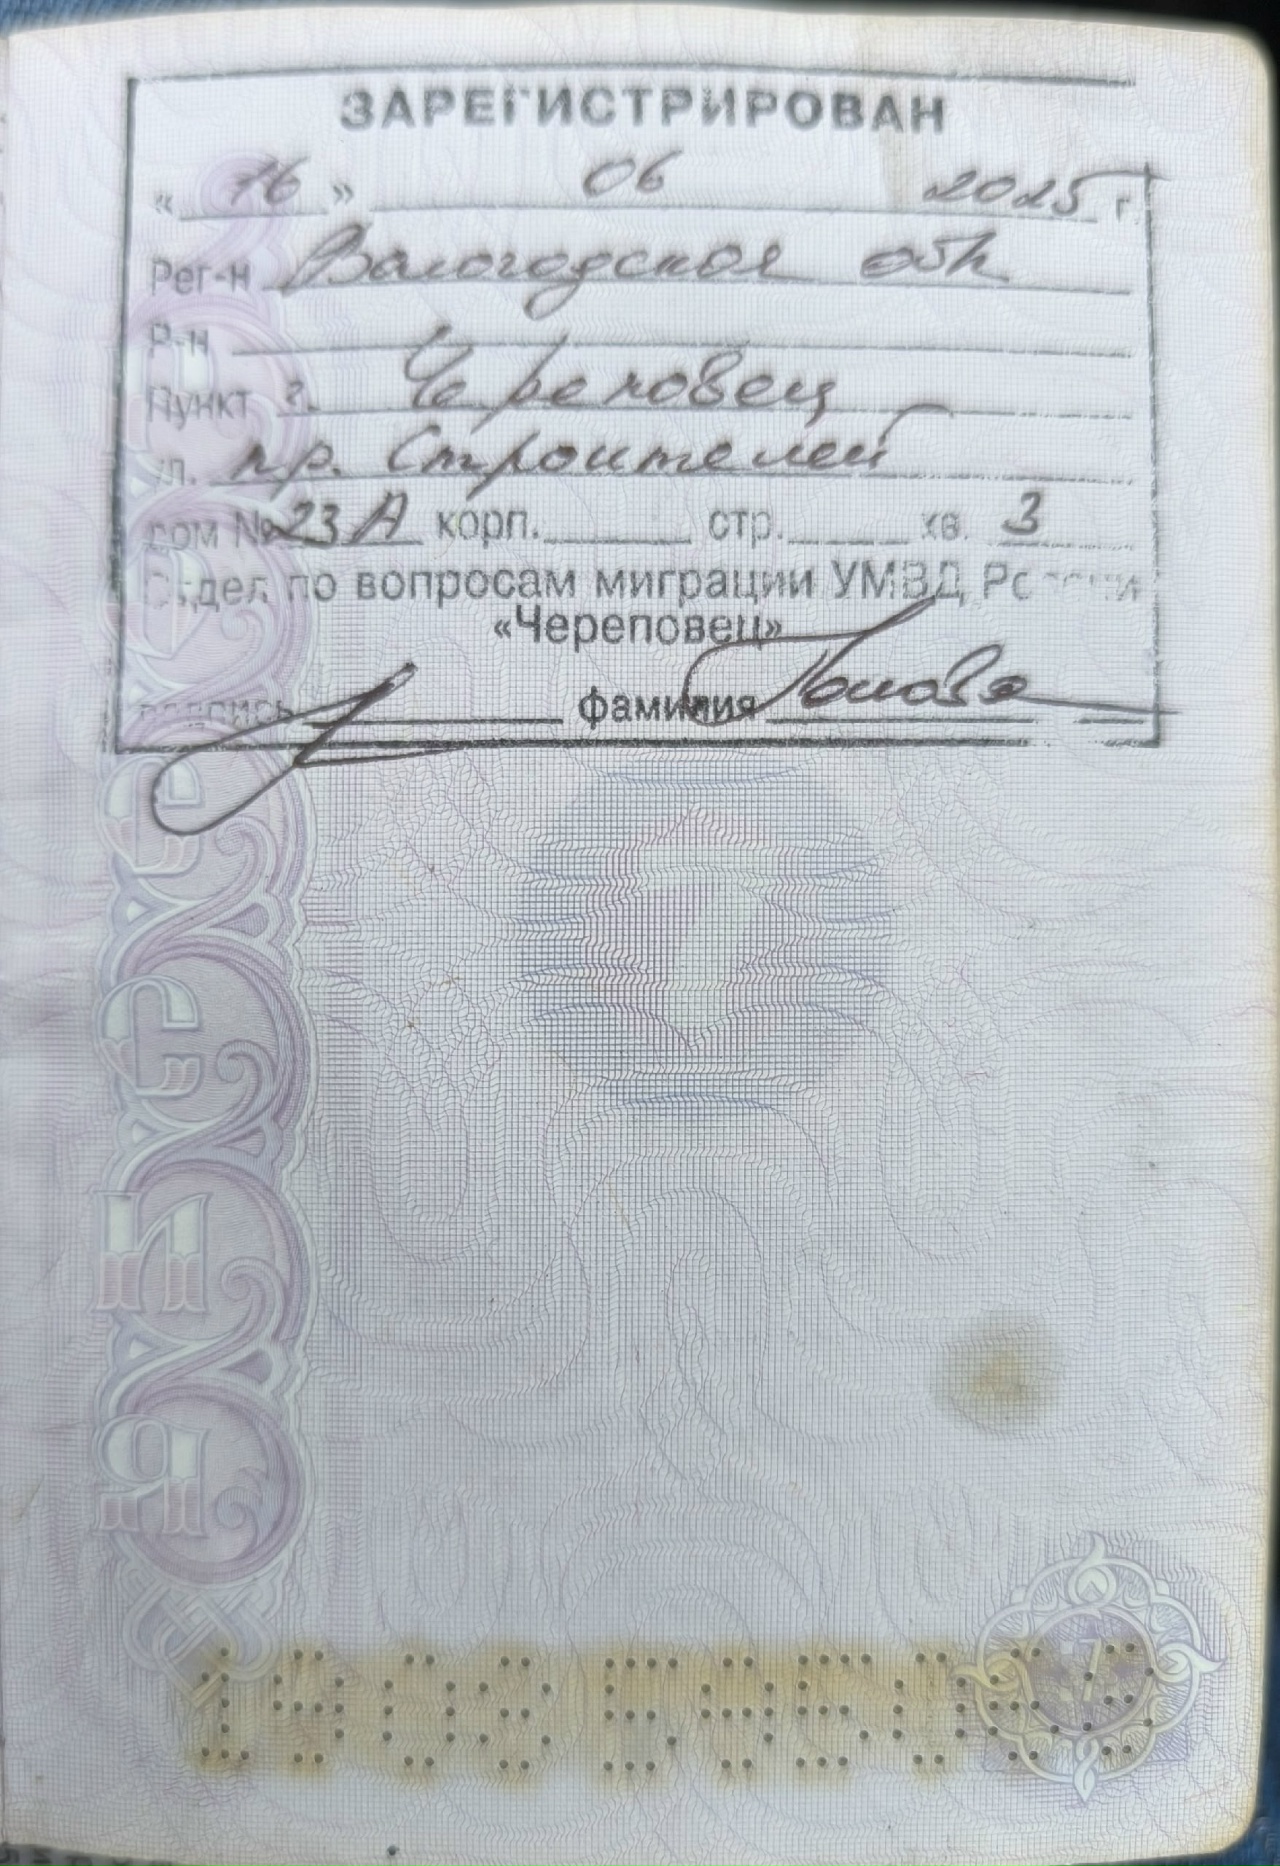 ЗАРЕГИСТРИРОВАН
« 16 » 06 2025 г.
Рег-н Вологодская обл
Р-н
Пункт г. Череповец
ул. пр. Строителей
дом № 23 А корп. стр. кв. 3
Отдел по вопросам миграции УМВД России
«Череповец»
подпись фамилия
7